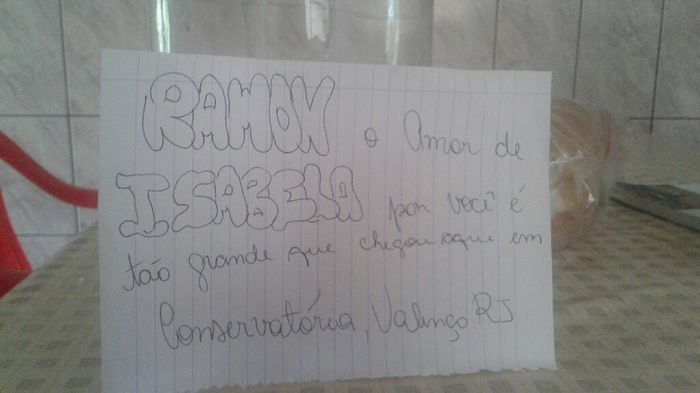 RAMON o Amor de
ISABELA por você é
tão grande que chegou aqui em
Conservatória, Valença RJ